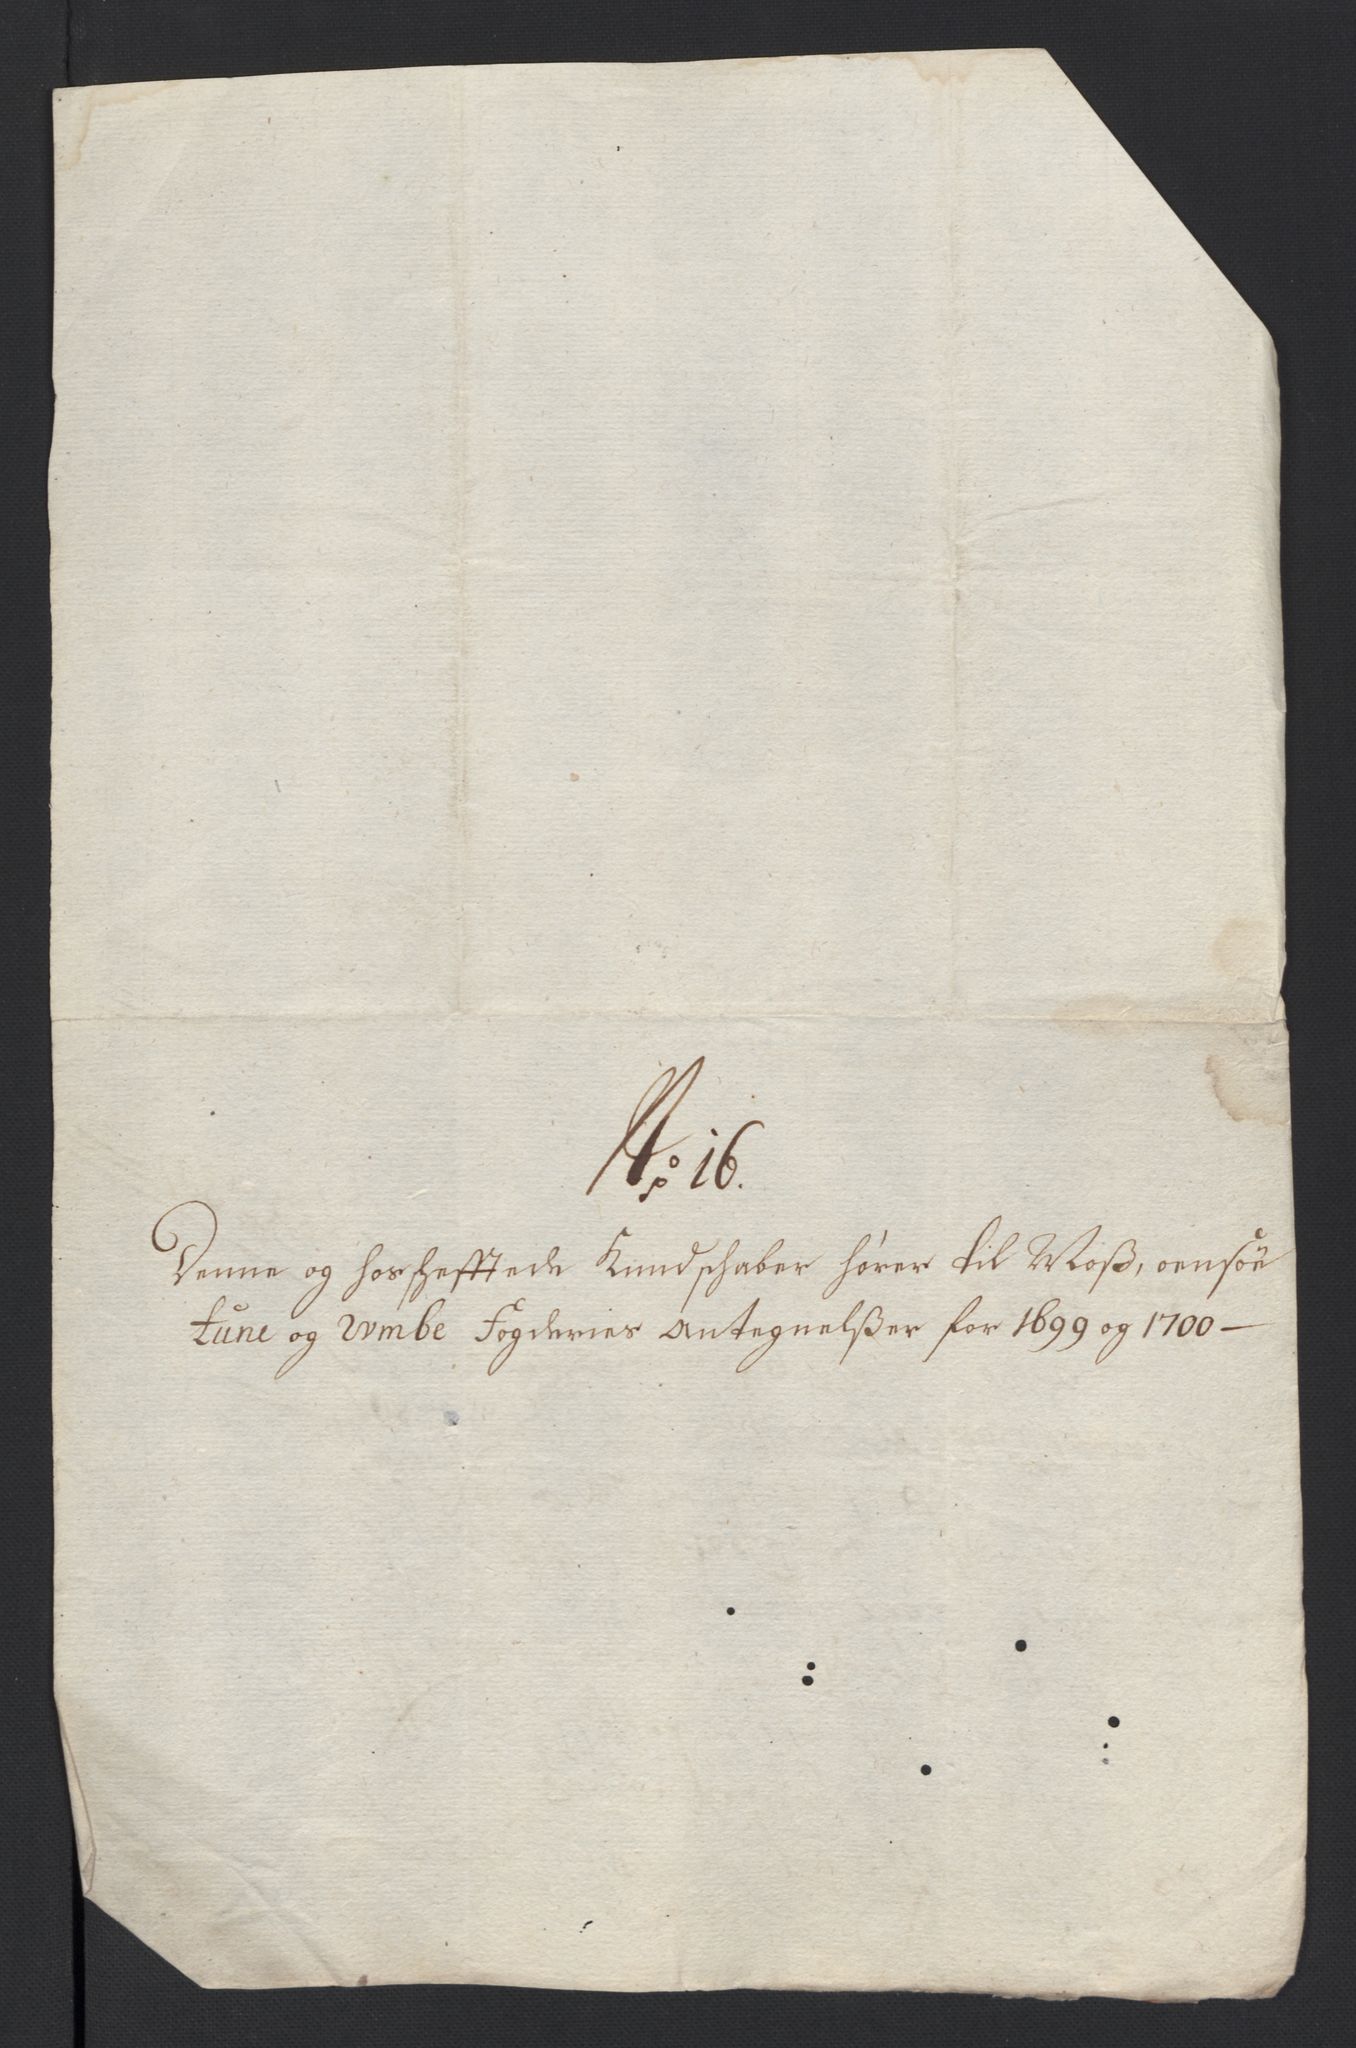 No: 16.
Denne og hoshefftede Kundschaber hører til Moß, oensöe
tune og wmbe Fogderies Antegnelßer for 1699 og 1700 —